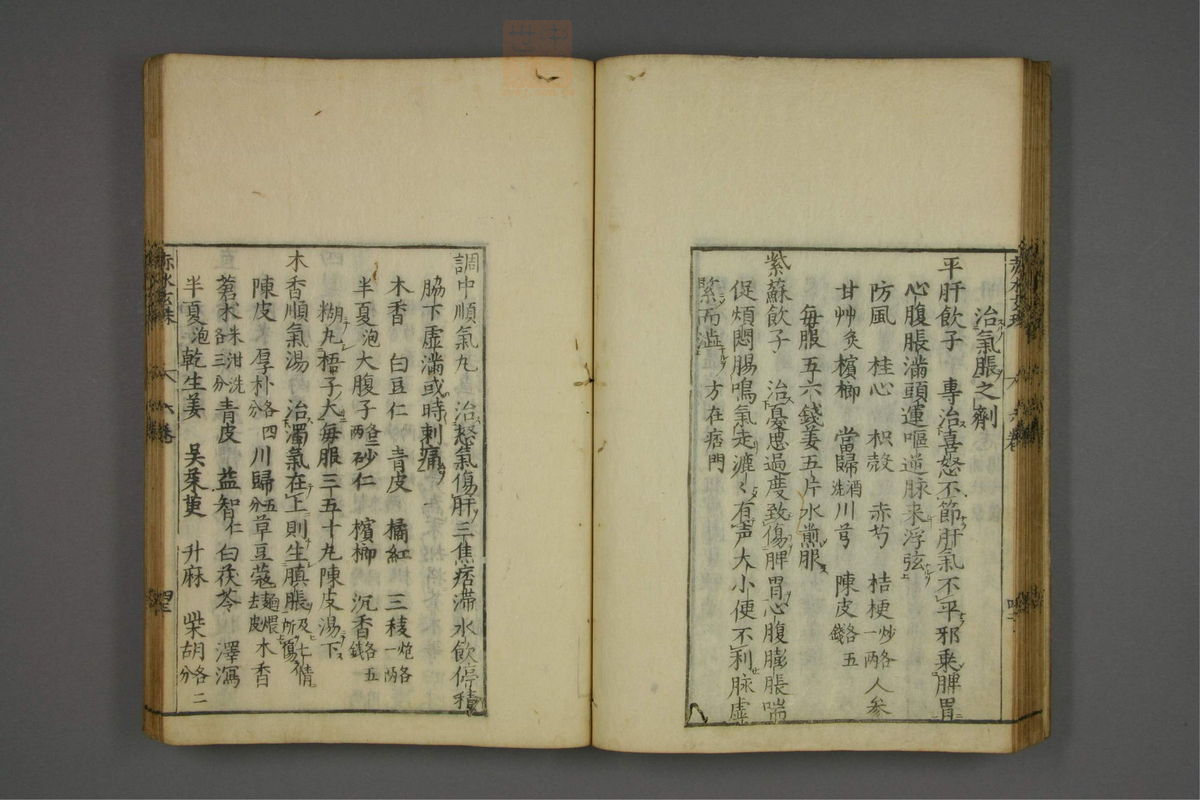 治氣脹之劑
平肝飲子 專治喜怒不節肝氣不平邪乗脾胃
心腹脹滿頭運嘔逆脉来浮弦
防風 桂心 枳殻 赤芍 桔梗炒各一两 人参
甘艸炙 檳榔 當歸酒洗 川芎 陳皮各五錢
毎服五六錢姜五片水煎服
紫蘇飲子 治憂思過度致傷脾胃心腹膨脹喘
促煩悶腸鳴氣走漉〻有声大小便不利脉虚
緊而澁 方在痞門
調中順氣丸 治怒氣傷肝三焦痞滞水飲停積
脇下虚滿或時刺痛
木香 白豆仁 青皮 橘紅 三稜炮各一两
半夏泡 大腹子各二两 砂仁 檳榔 沉香各五錢
糊丸梧子大毎服三五十丸陳皮湯下
木香順氣湯 治濁氣在上則生䐜脹及七情所傷
陳皮 厚朴各四分 川歸五分 草豆蔲麵煨去皮 木香
蒼术米泔洗各三分 青皮 益智仁 白茯苓 澤瀉
半夏泡 乾生姜 吴茱萸 升麻 柴胡各二分
赤水玄珠 六巻